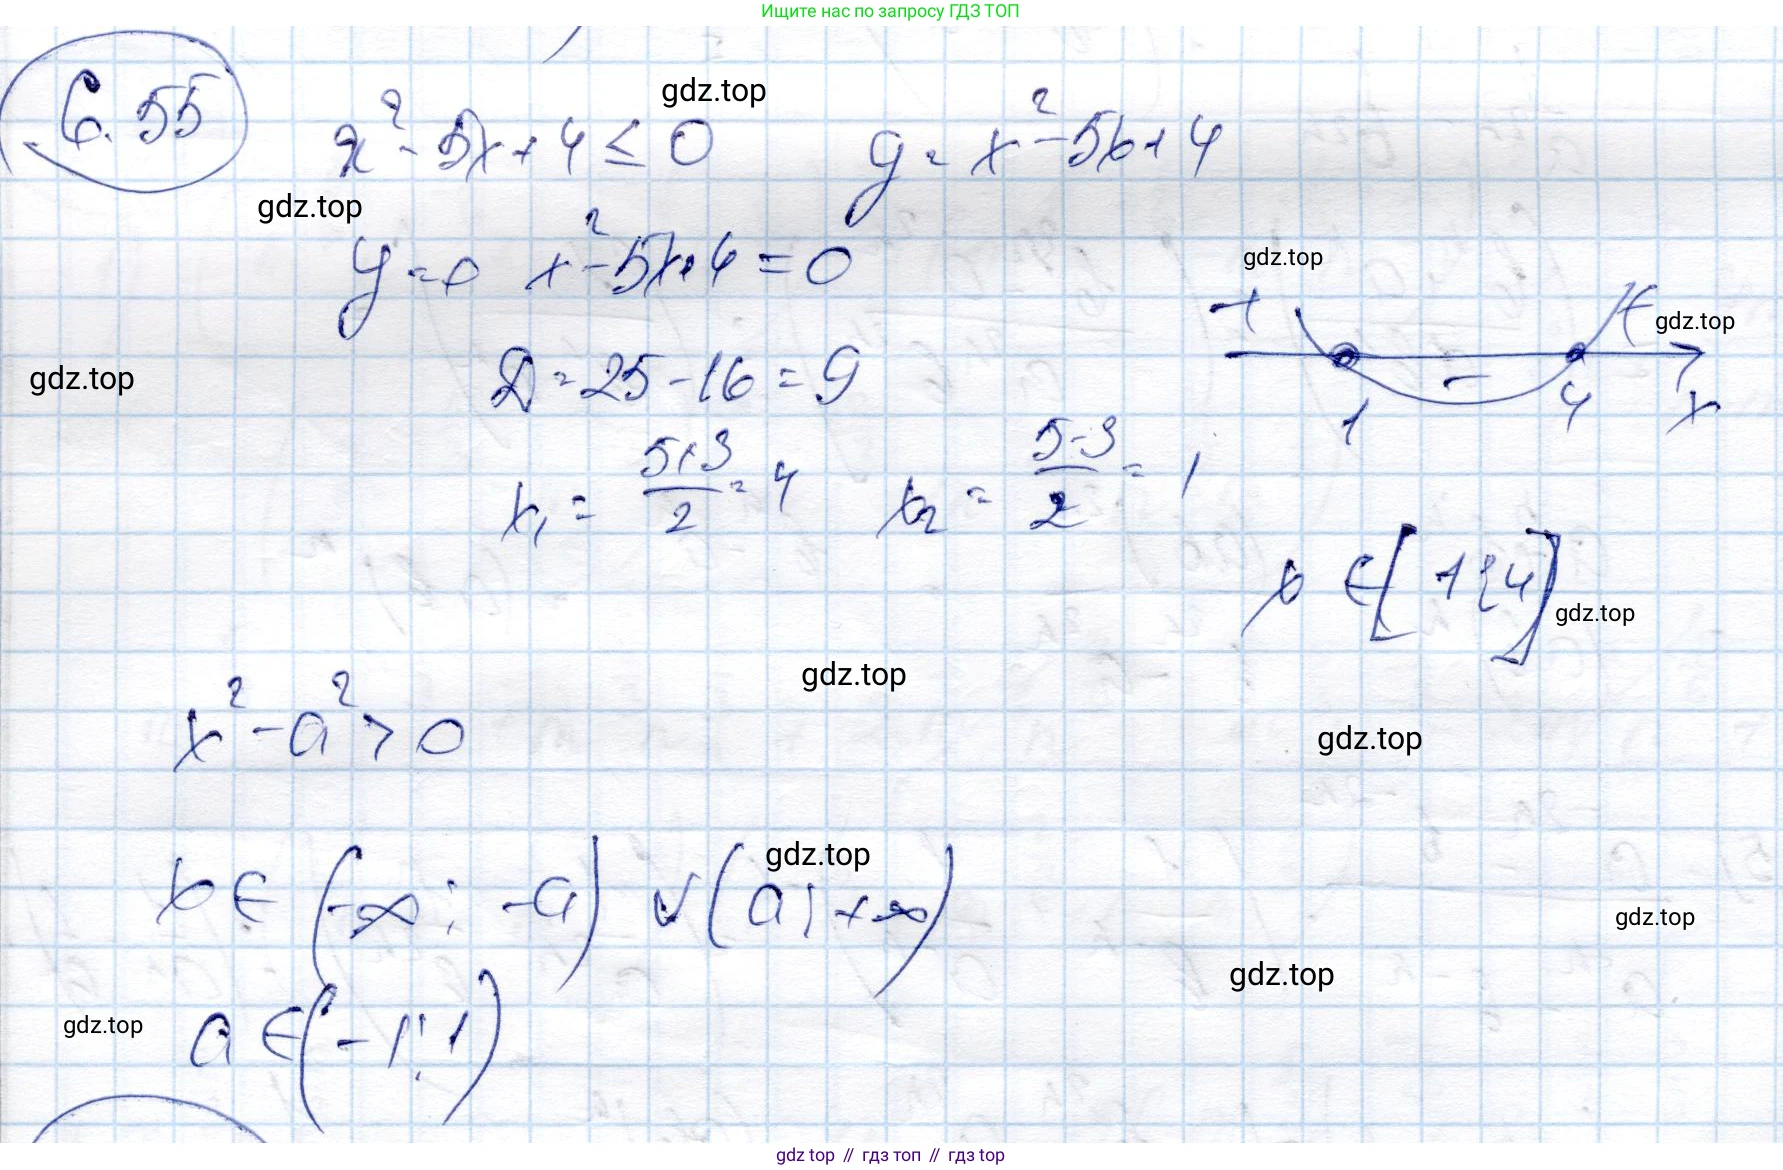 Ищите нас по запросу ГДЗ ТОП
6.55
gdz.top
x² - 5x + 4 ≤ 0    y = x² - 5x + 4
gdz.top
y = 0   x² - 5x + 4 = 0
gdz.top
+ - + gdz.top
1 4 x
gdz.top
D = 25 - 16 = 9
x₁ = (5+3)/2 = 4    x₂ = (5-3)/2 = 1
x ∈ [1; 4]
gdz.top
gdz.top
x² - a² > 0
gdz.top
gdz.top
x ∈ (-∞; -a) ∪ (a; +∞)
gdz.top
gdz.top
gdz.top
a ∈ (-1; 1)
gdz top // гдз топ // гдз top